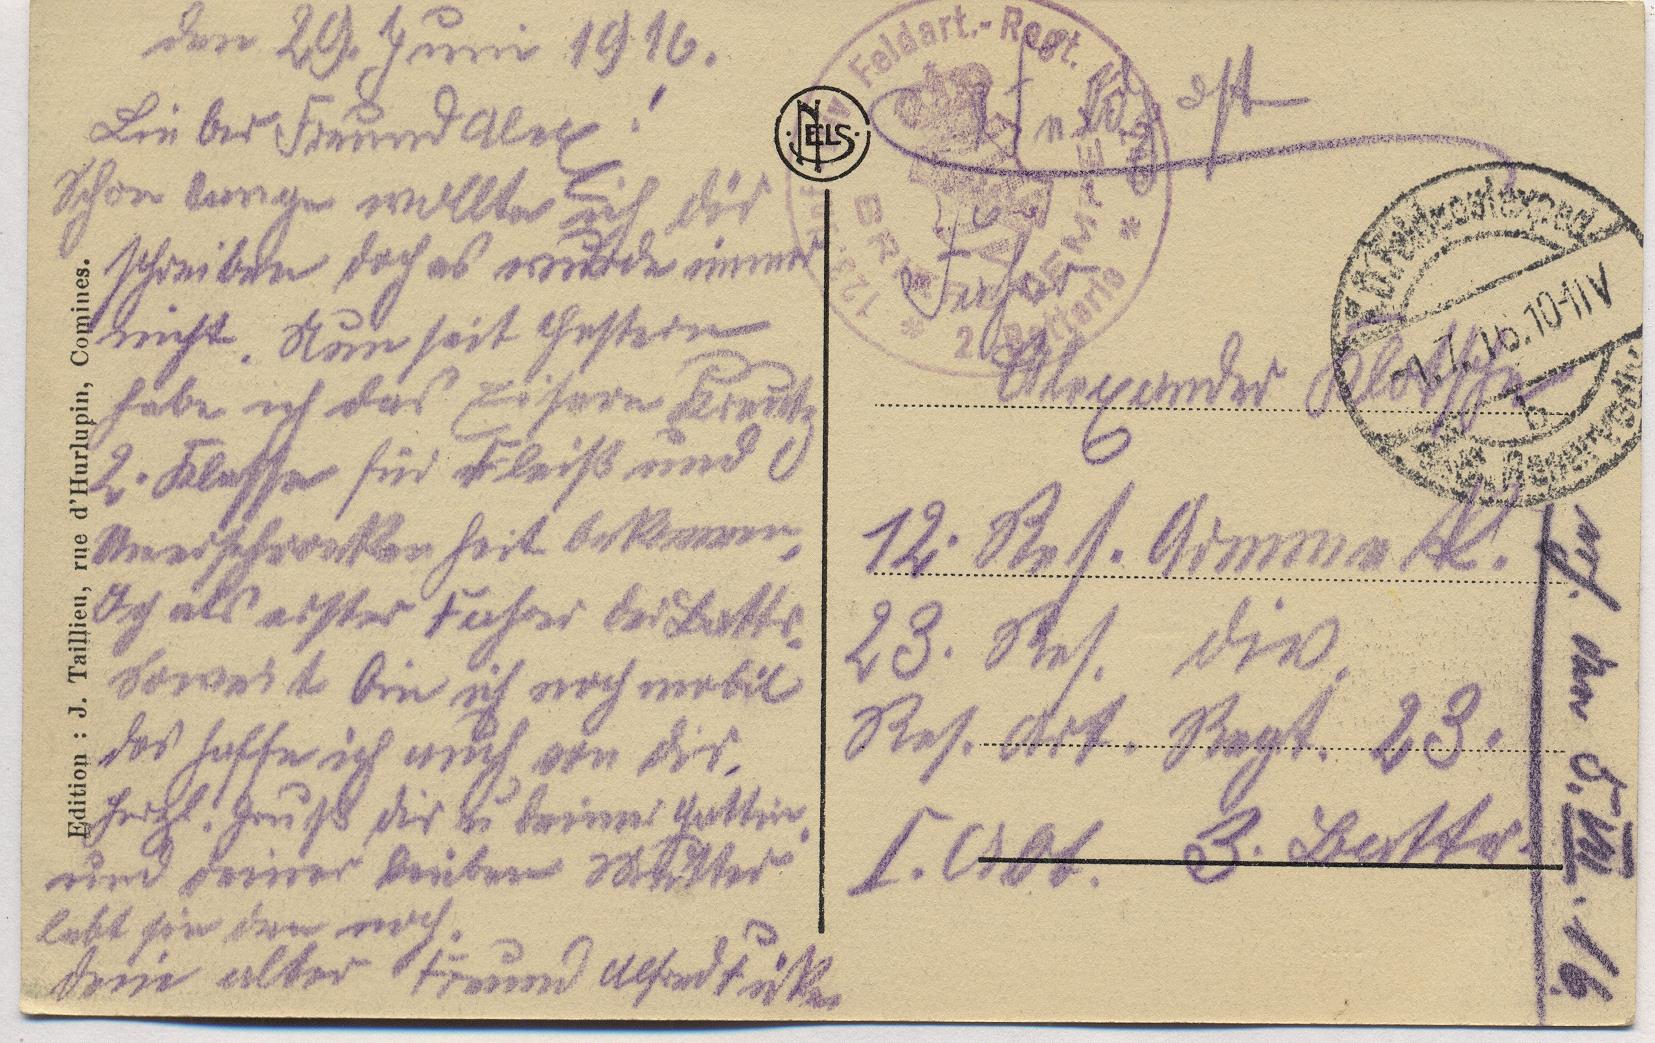 den 29. Juni 1916.
Lieber Freund Alex!
Schon lange wollte ich dir
schreiben doch es wurde immer
nicht. Nun seit Gestern
habe ich das Eiserne Kreutz
2. Klasse für Fleiß und
Unerschrockenheit bekommen,
als erster Fahrer der Battr.
Soweit bin ich noch mobil
das hoffe ich auch von dir.
Herzl. Gruß dir u deiner Gattin,
und deiner lieben Mutter
lebt sie den noch.
Dein alter Freund Alfred
Edition : J. Taillieu, rue d'Hurlupin, Comines.
NELS
Feldart.-Regt. Nr.
2. Batterie
Feldpost
Fahrer
Alexander Klotsche
12. Res. Armee K.
23. Res. Div.
Res. Art. Regt. 23.
I. Abt. 3. Battr.
K.D. Feldpostexped.
1.7.16. 10-11V
b
Reservediv.
den 5. VII. 16.